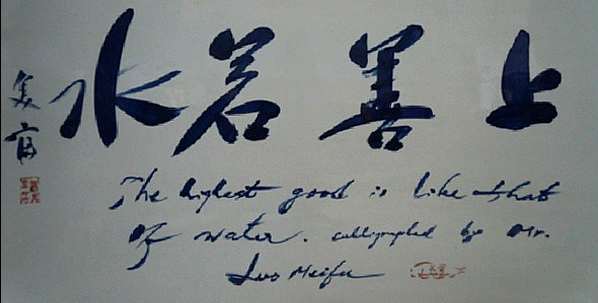 上善若水
The highest good is like that
of water. calligraphed by Mr.
Luo Meifu
美富